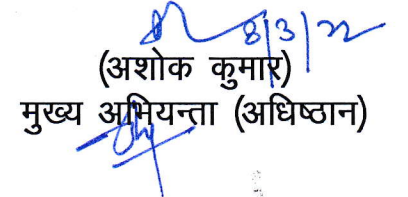 8/3/22
(अशोक कुमार)
मुख्य अभियन्ता (अधिष्ठान)